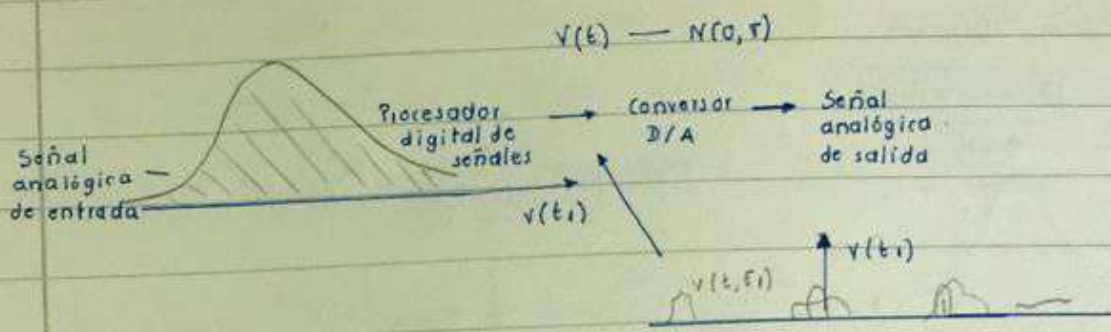 V(t) — N(0, τ)
Señal
analógica
de entrada
Procesador
digital de
señales
Conversor
D/A
Señal
analógica
de salida
v(t₁)
v(t₁)